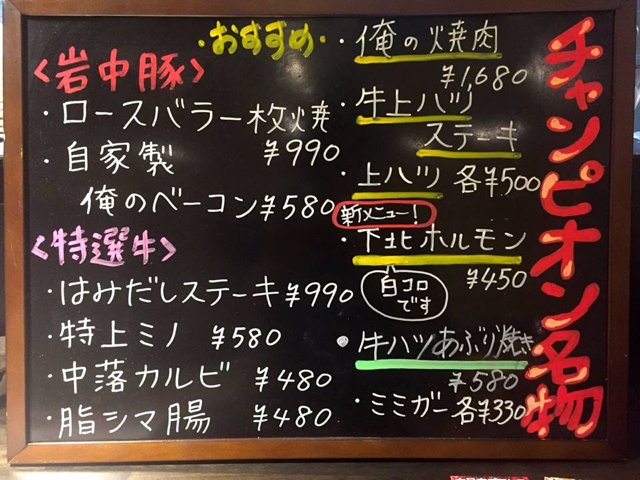 チャンピオン名物
・おすすめ・
<岩中豚>
・ロースバラ一枚焼
¥990
・自家製
俺のベーコン¥580
<特選牛>
・はみだしステーキ¥990
・特上ミノ ¥580
・中落カルビ ¥480
・脂シマ腸 ¥480
・俺の焼肉
¥1,680
・牛上ハツ
ステーキ
・上ハツ 各¥500
新メニュー!
・下北ホルモン
¥450
白コロ
です
・牛ハツあぶり焼き
¥580
・ミミガー各¥330